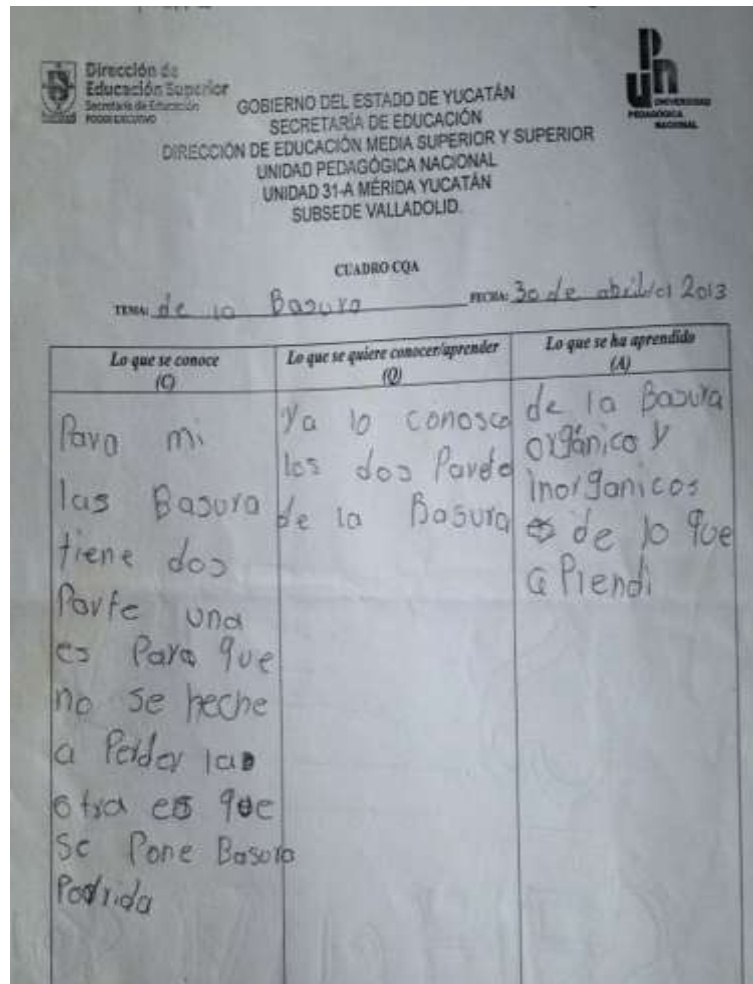 Dirección de
Educación Superior
Secretaría de Educación
PODER EJECUTIVO
UNIVERSIDAD
PEDAGÓGICA
NACIONAL
GOBIERNO DEL ESTADO DE YUCATÁN
SECRETARÍA DE EDUCACIÓN
DIRECCIÓN DE EDUCACIÓN MEDIA SUPERIOR Y SUPERIOR
UNIDAD PEDAGÓGICA NACIONAL
UNIDAD 31-A MÉRIDA YUCATÁN
SUBSEDE VALLADOLID.
CUADRO CQA
TEMA: de la Basura FECHA: 30 de abril del 2013
Lo que se conoce
(C)
Para mi
las Basura
tiene dos
Parte una
es Para que
no se heche
a Perder las
otra es que
se Pone Basura
Podrida
Lo que se quiere conocer/aprender
(Q)
Ya lo conosco
los dos Parde
de la Basura
Lo que se ha aprendido
(A)
de la Basura
orgánico y
Inorganicos
es de lo que
a Prendi